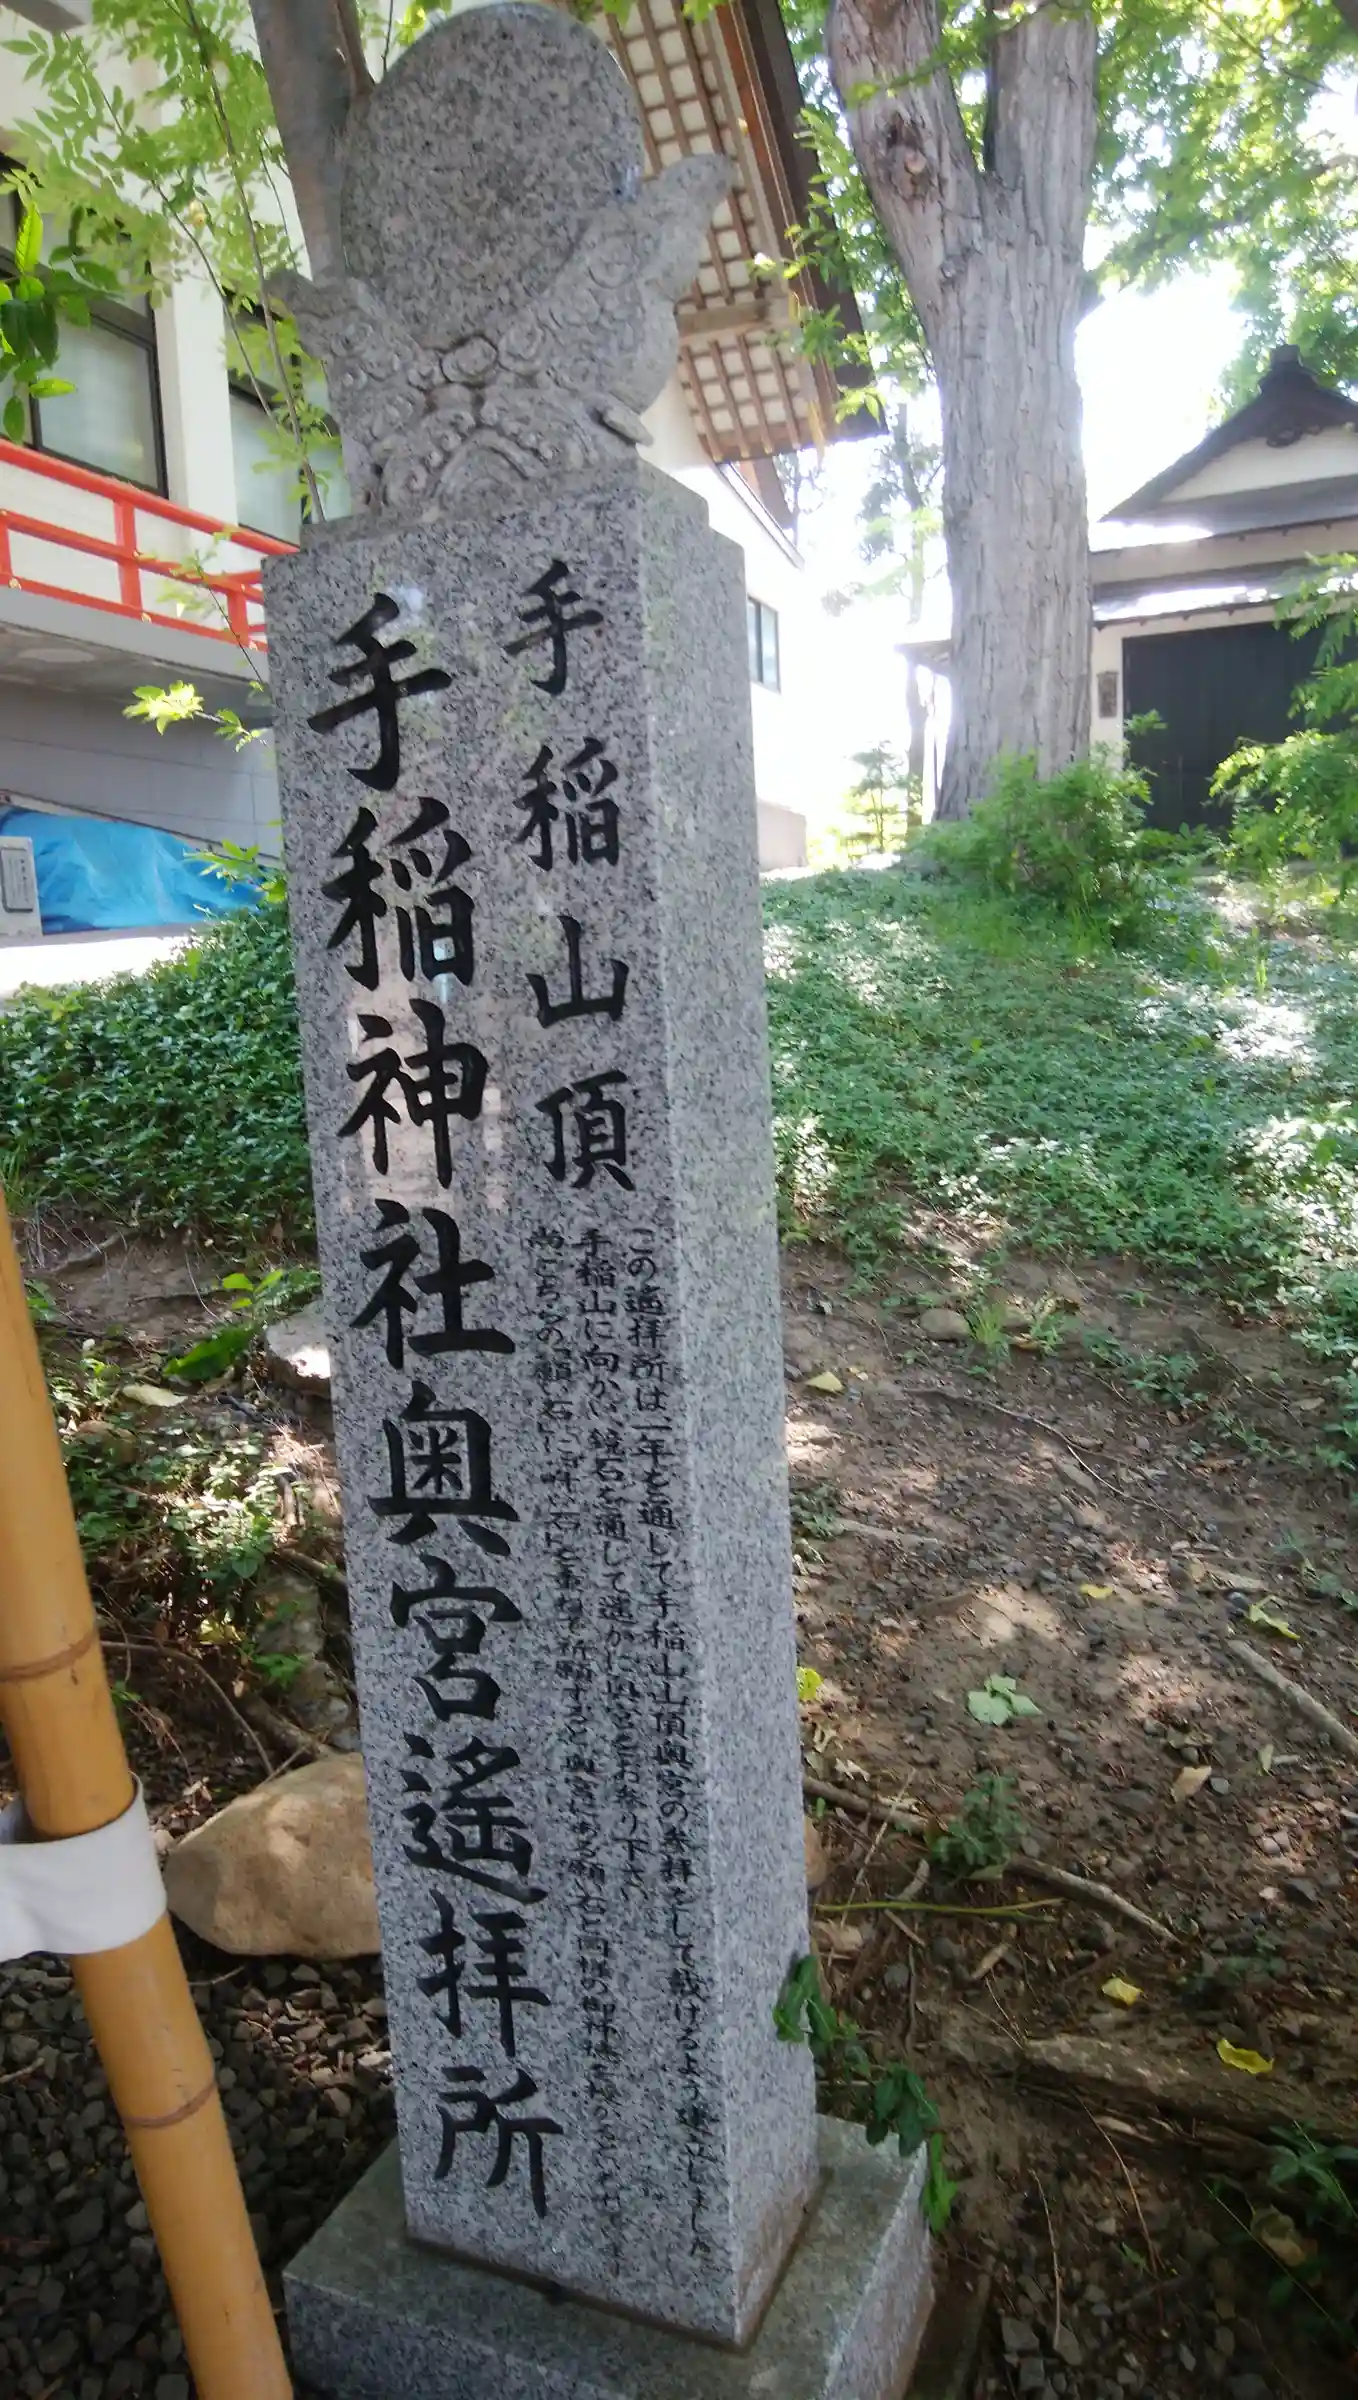 手稲山頂
手稲神社奥宮遙拝所
この遙拝所は一年を通して手稲山山頂奥宮の参拝をして戴けるよう建立しました
手稲山に向かい鏡石を通して遥かに奥宮をお参り下さい
尚こちらの願い石に叶え石を重ねて祈願すると奥宮にある願い石と同様の御神徳を授かると